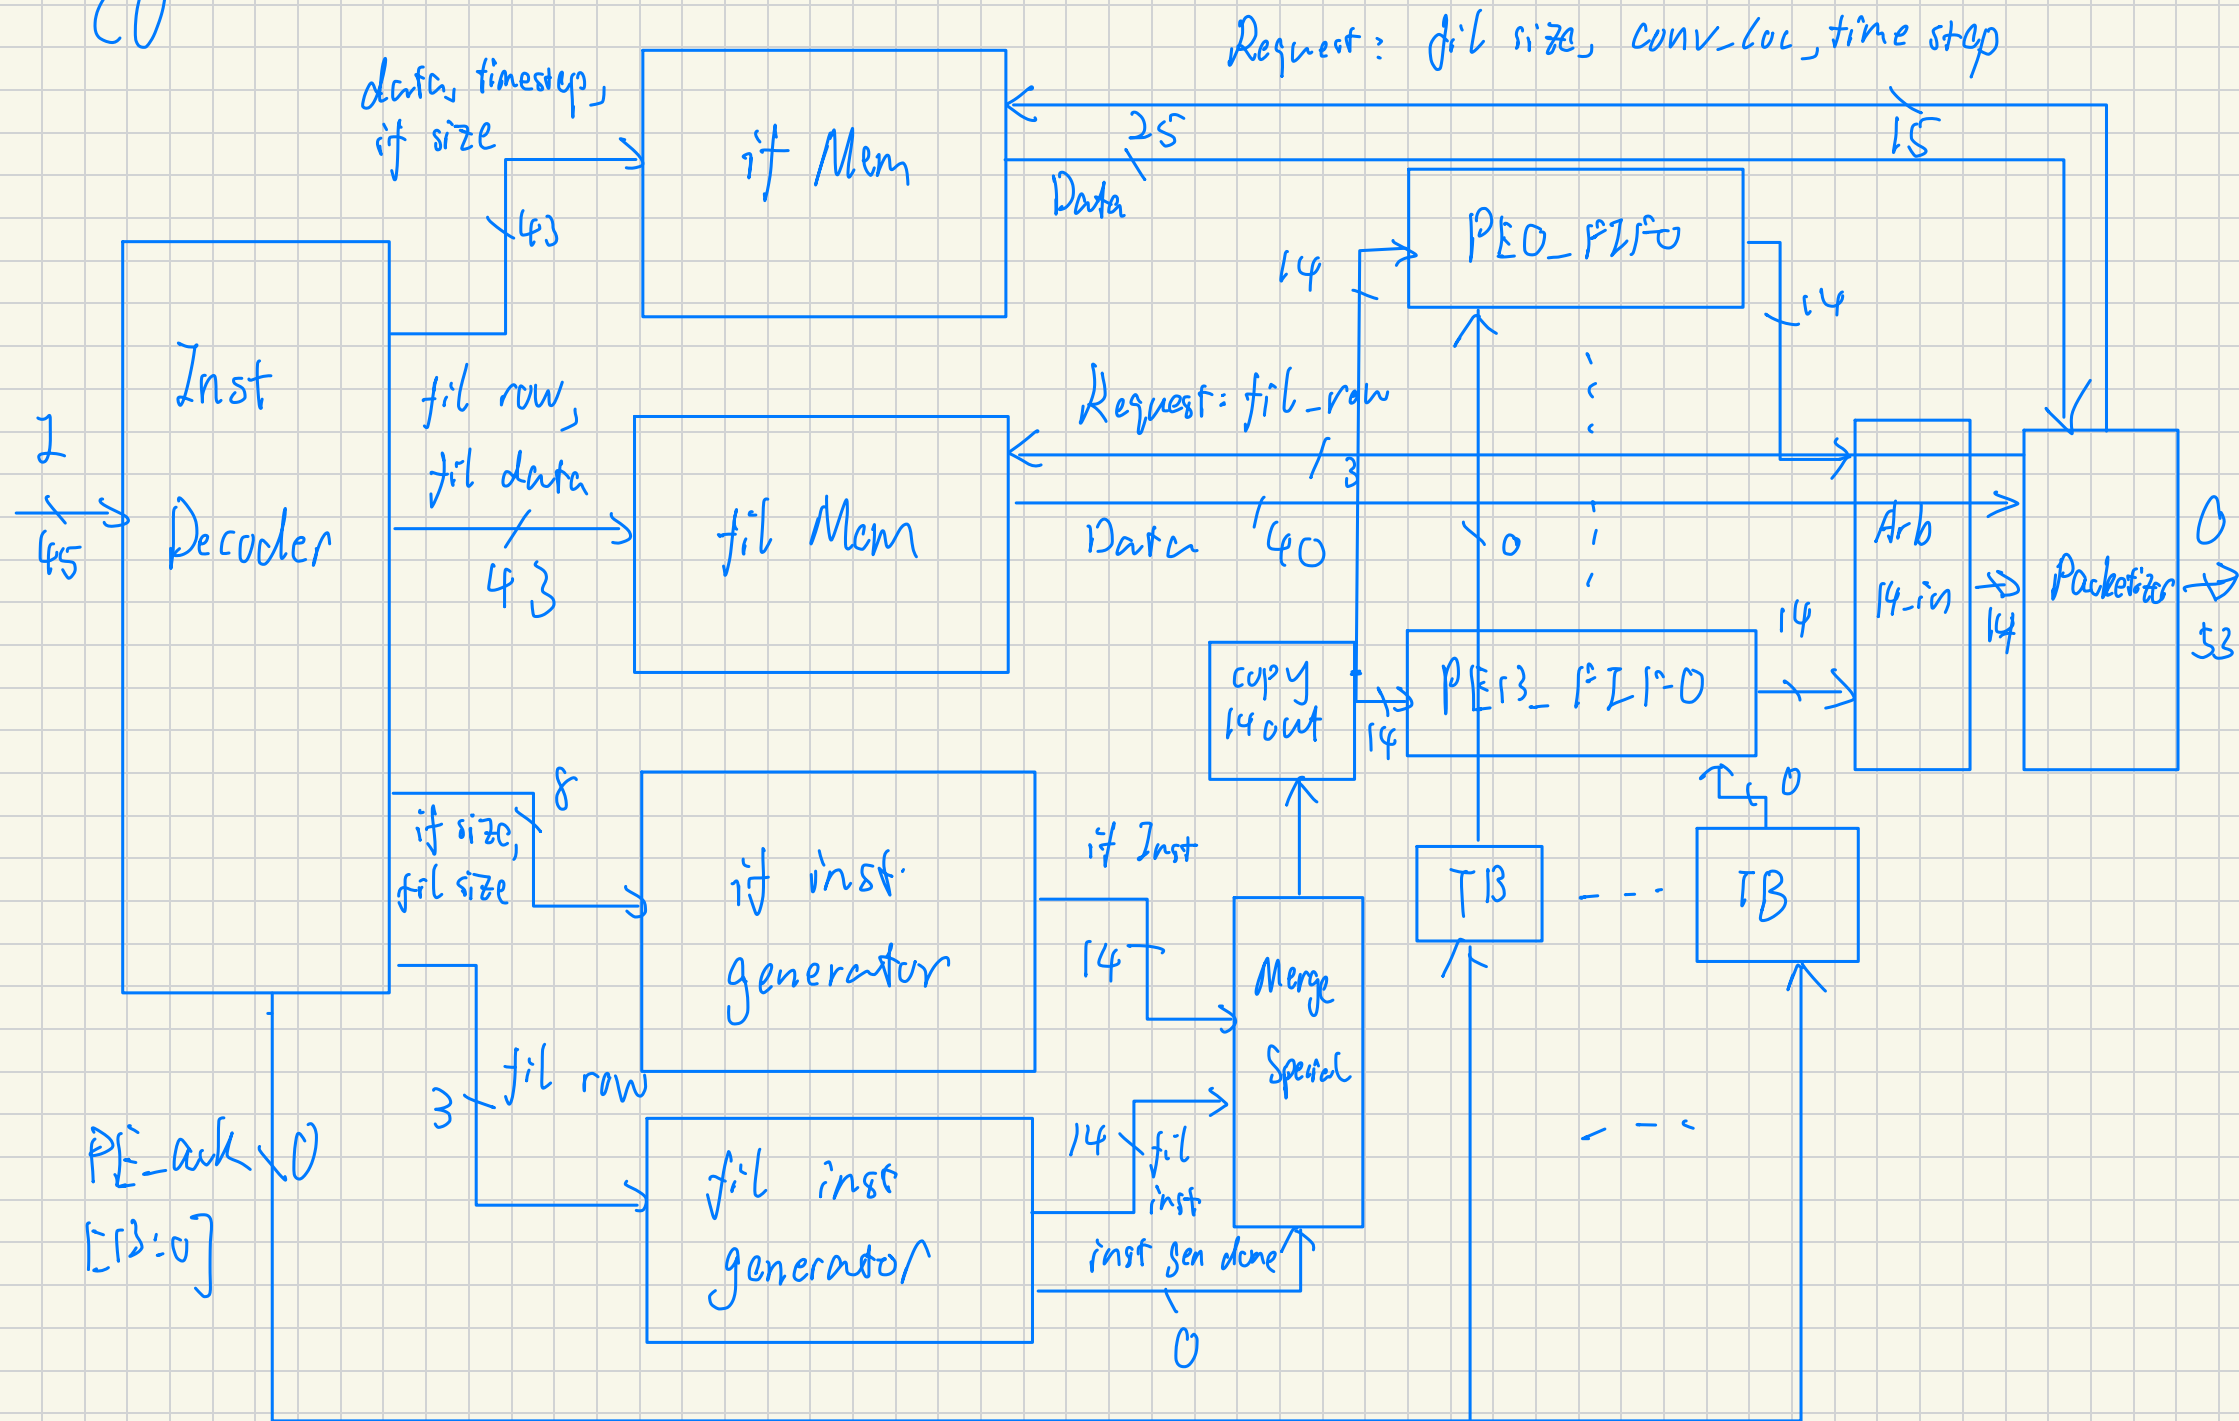 Request: fil size, conv_loc, time step
data, timestep,
if size
43
if Mem
25
Data
15
PE0_FIFO
14
14
I
45
Inst
Decoder
fil row,
fil data
43
fil Mem
Request: fil_row
3
Data
40
0
Arb
14_in
14
Packetizer
O
53
copy
14 out
14
PE13_FIFO
14
8
if size,
fil size
if inst.
generator
if Inst
14
Merge
Special
TB
---
TB
0
3
fil row
fil inst
generator
14
fil
inst
inst gen done
0
PE_ack
0
[13:0]
---